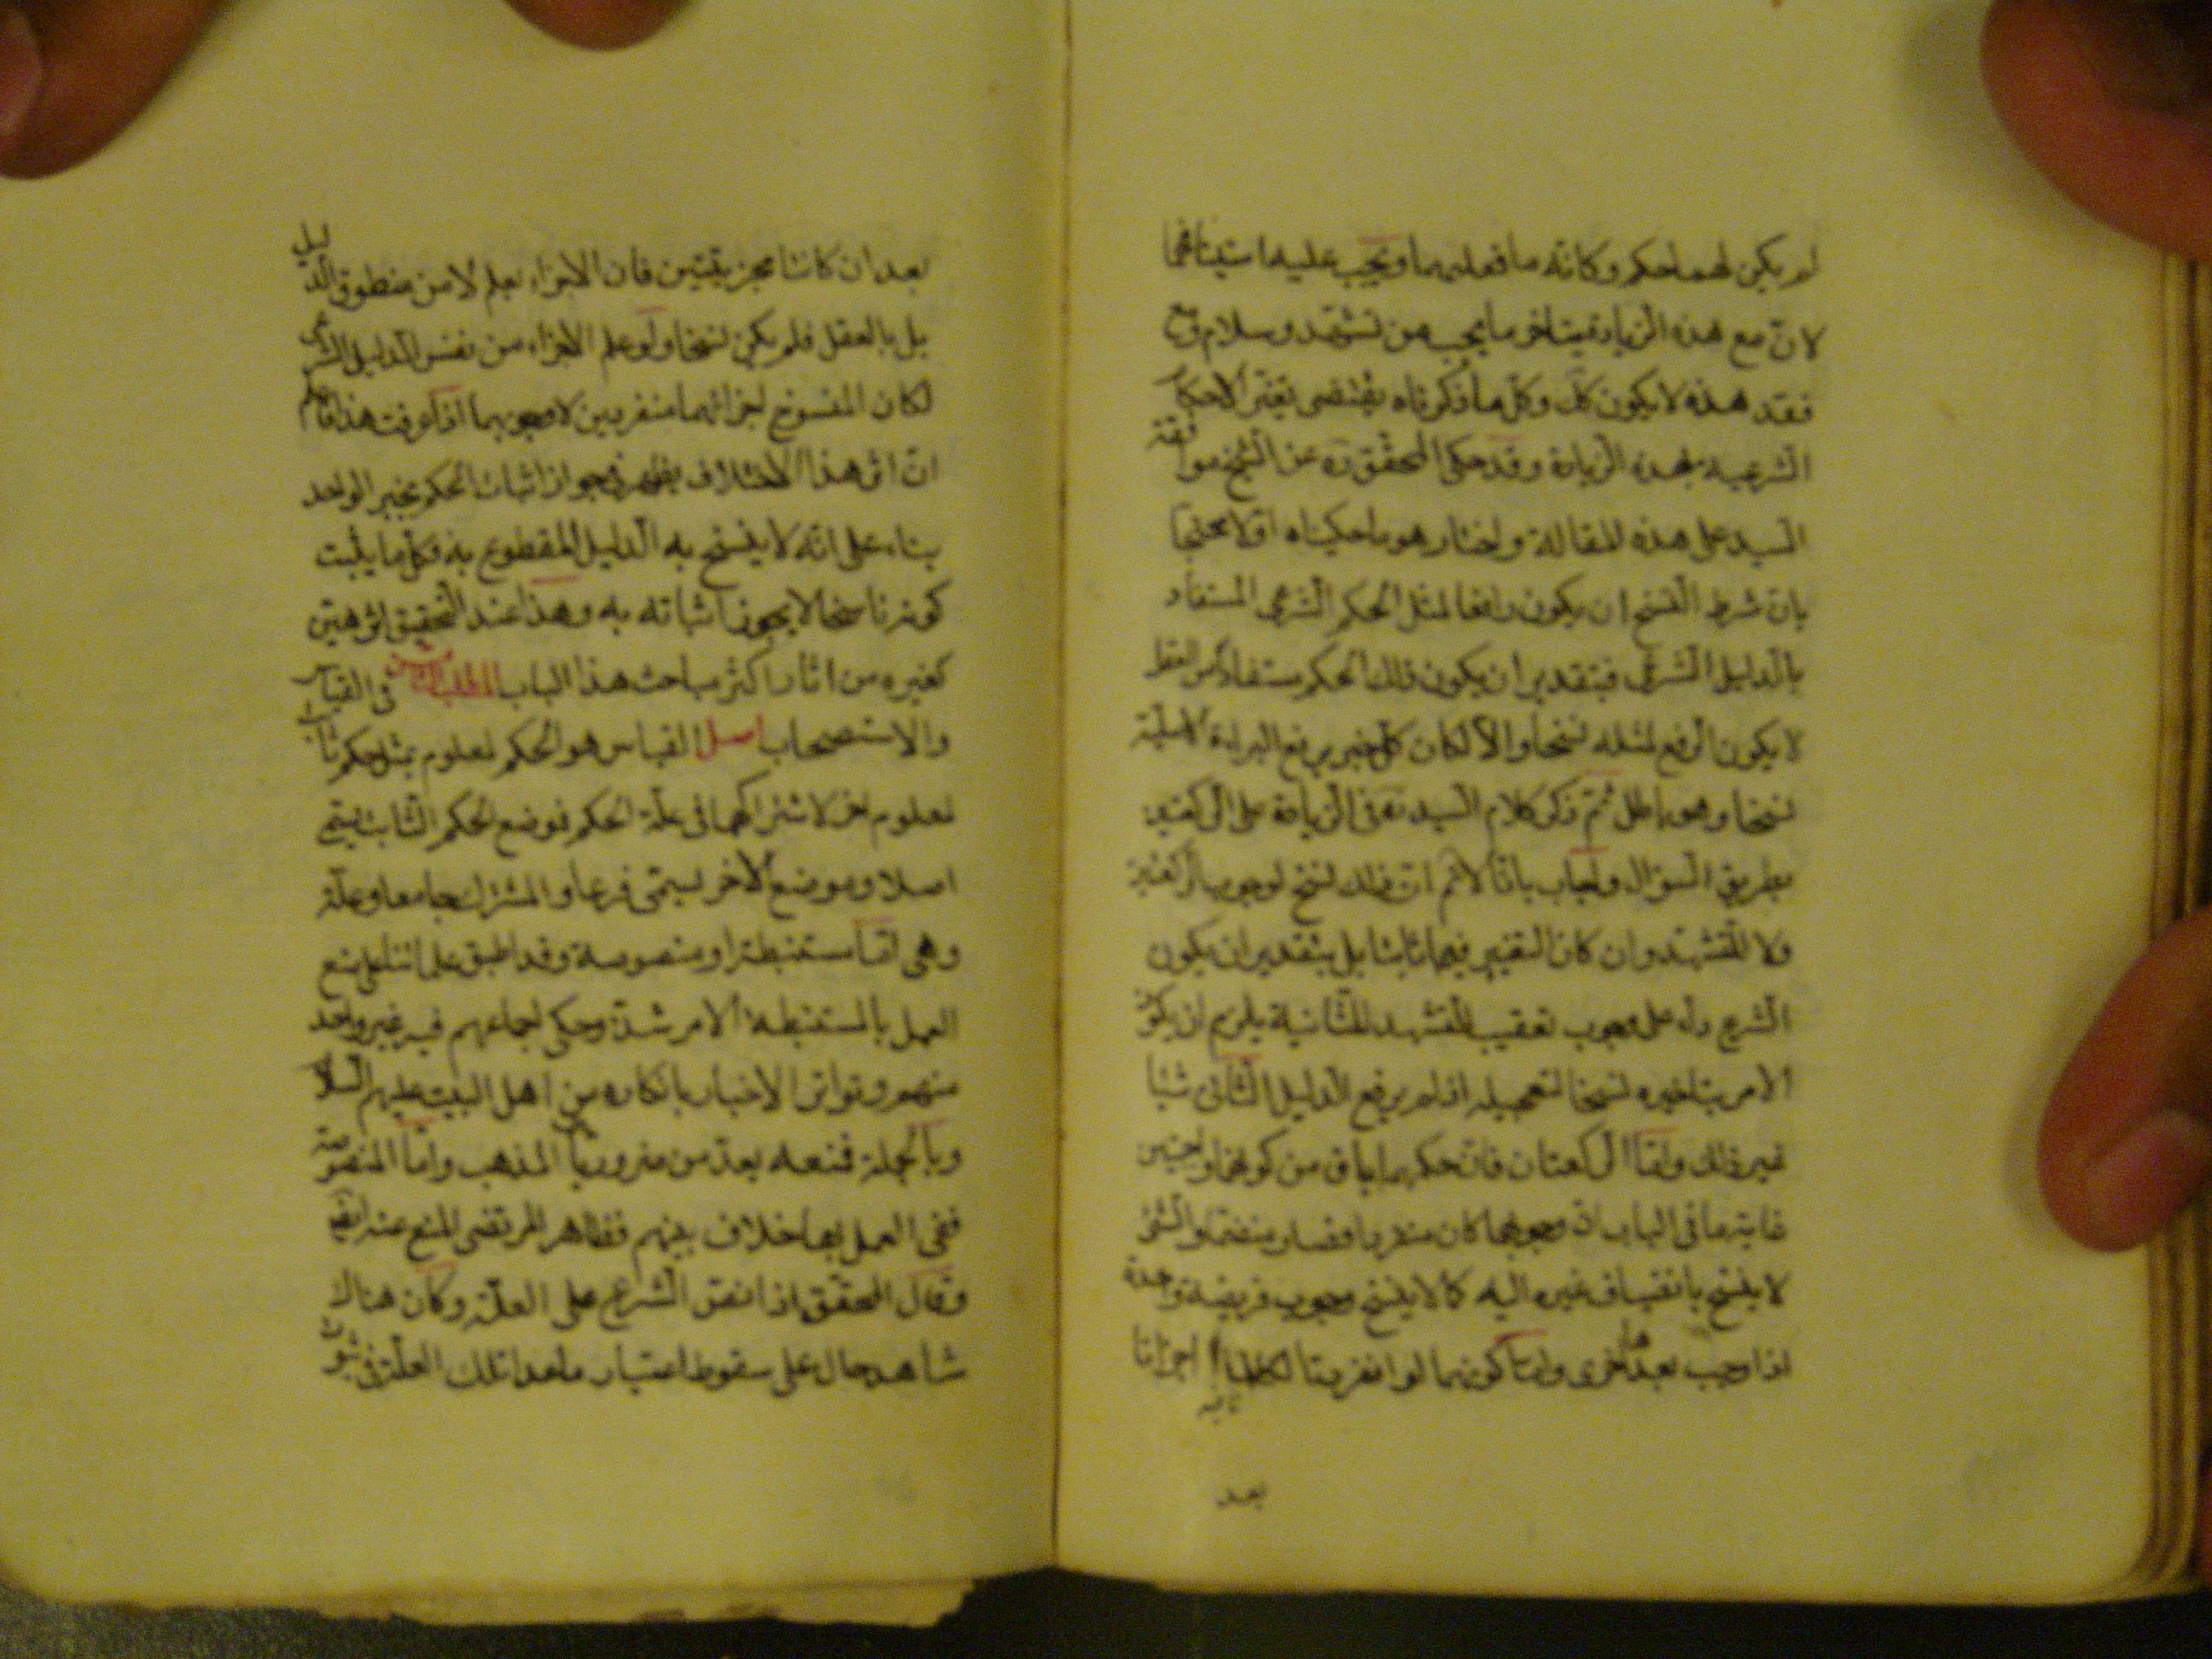 لم يكن لهما حكم وكانه ما فعلهما ويجب عليه استينافهما
لانّ مع هذه الزيادة يتاخر ما يجب من تشهد وسلام ومع
فقد هذه لا يكون كك وكل ما ذكرناه يقتضى تغير الاحكا
الشرعية بهذه الزيادة وقد حكى المحقق ره عن الشيخ موافقة
السيد على هذه المقالة واختار هو ما حكيناه اولا محتجا
بان شرط النسخ ان يكون رافعا لمثل الحكم الشرعى المستفاد
بالدليل الشرعى فبتقدير ان يكون ذلك الحكم مستفادا من العقل
لا يكون الرفع لمثله نسخا والا لكان كل خبر يرفع البراءة الاصلية
نسخا وهو باطل ثم ذكر كلام السيد ره فى الزيادة على الركعتين
بطريق السؤال واجاب بانا لانم ان ذلك نسخ لوجوب الركعتين
ولا للتشهد وان كان التغيير فيهما ثابتا بل بتقدير ان يكون
الشرع دل على وجوب تعقيب التشهد للثانية يلزم ان يكون
الامر بتاخيره نسخا لتعجيله اذ لم يرفع الدليل الثانى شيئا
غير ذلك وامّا الركعتان فان حكمهما باق من كونهما واجبتين
غاية ما فى الباب ان وجوبهما كان منفردا فصار منضما والشئ
لا ينسخ بانضياف غيره اليه كما لا ينسخ وجوب فريضة واحدة
اذا وجب بعدها اخرى وامّا كونهما لو انفردتا لما اجزاتا
بعد
بعد ان كانتا مجزيتين فان الاجزاء يعلم لا من منطوق الدليل
بل بالعقل فلم يكن نسخا ولو علم الاجزاء من نفس الدليل الشرعى
لكان المنسوخ اجزائهما منفردين لا وجوبهما اذا عرفت هذا فاعلم
انّ اثر هذا الاختلاف يظهر فى جواز اثبات الحكم بخبر الواحد
بناء على انّه لا ينسخ به الدليل المقطوع به فكل ما يثبت
كونه ناسخا لا يجوز اثباته به وهذا عند التحقيق اثر هيّن
كغيره من اثار اكثر مباحث هذا الباب المطلب فى القياس
والاستصحاب اصل القياس هو الحكم لمعلوم بمثل حكم ثابت
لمعلوم اخر لاشتراكهما فى علة الحكم فموضع الحكم الثابت يسمى
اصلا وموضع الاخر يسمّى فرعا والمشترك جامعا وعلّة
وهى امّا مستنبطة او منصوصة وقد اطبق علمائنا على منع
العمل بالمستنبطة الا من شذّ وحكى اجماعهم فيه غير واحد
منهم وتواتر الاخبار بانكاره من اهل البيت عليهم السلام
وبالجملة فمنعه يعدّ من ضروريّا المذهب وامّا المنصوصة
ففى العمل بها خلاف بينهم فظاهر المرتضى المنع منه ايضا
وقال المحقّق اذا نصّ الشرع على العلّة وكان هناك
شاهد حال على سقوط اعتبار ما عدا تلك العلّة فى ثبوت